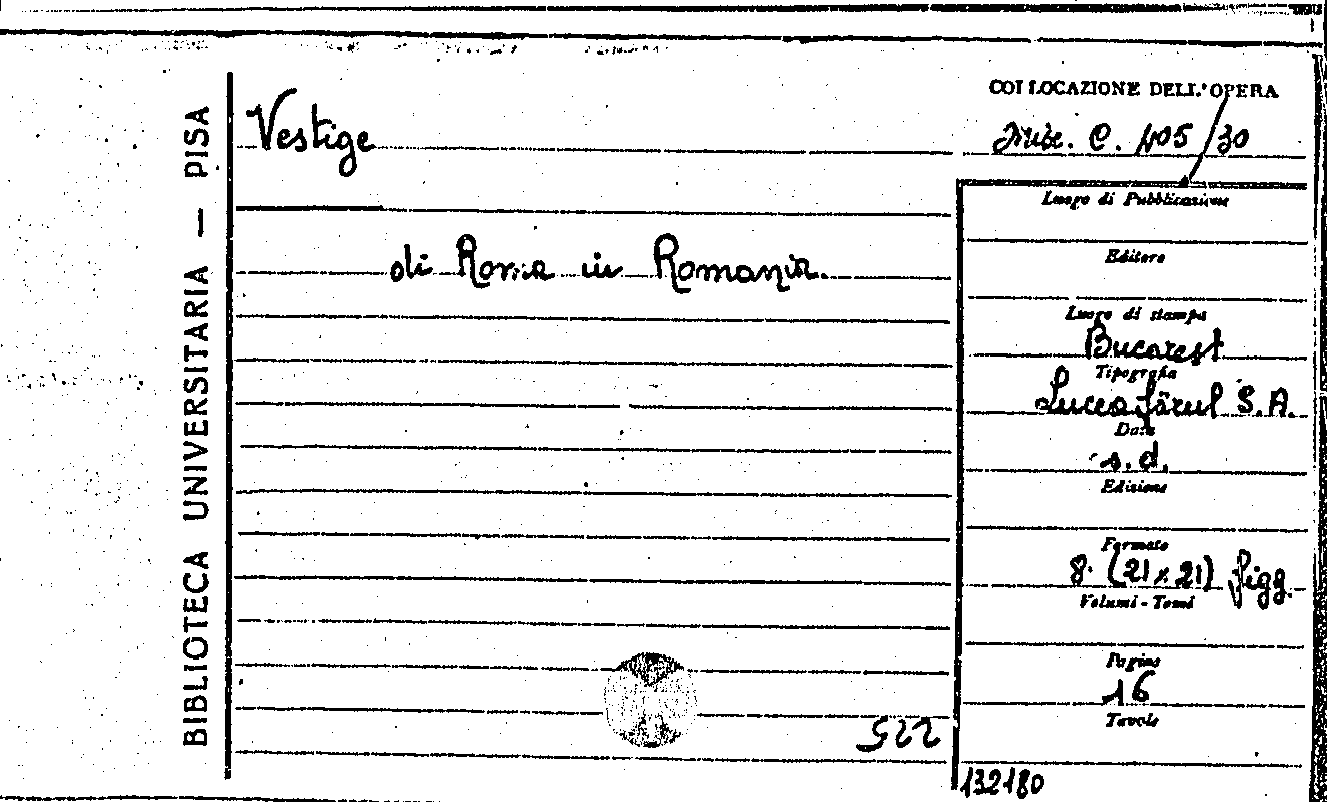 BIBLIOTECA UNIVERSITARIA — PISA
Vestige
di Roma in Romania.
COLLOCAZIONE DELL'OPERA
Misc. C. 405/30
Luogo di Pubblicazione
Editore
Luogo di stampa
Bucarest
Tipografia
Luceafărul S.A.
Data
s. d.
Edizione
Formato
8. (21 x 21) figg.
Volumi - Tomi
Pagine
16
Tavole
522
132180